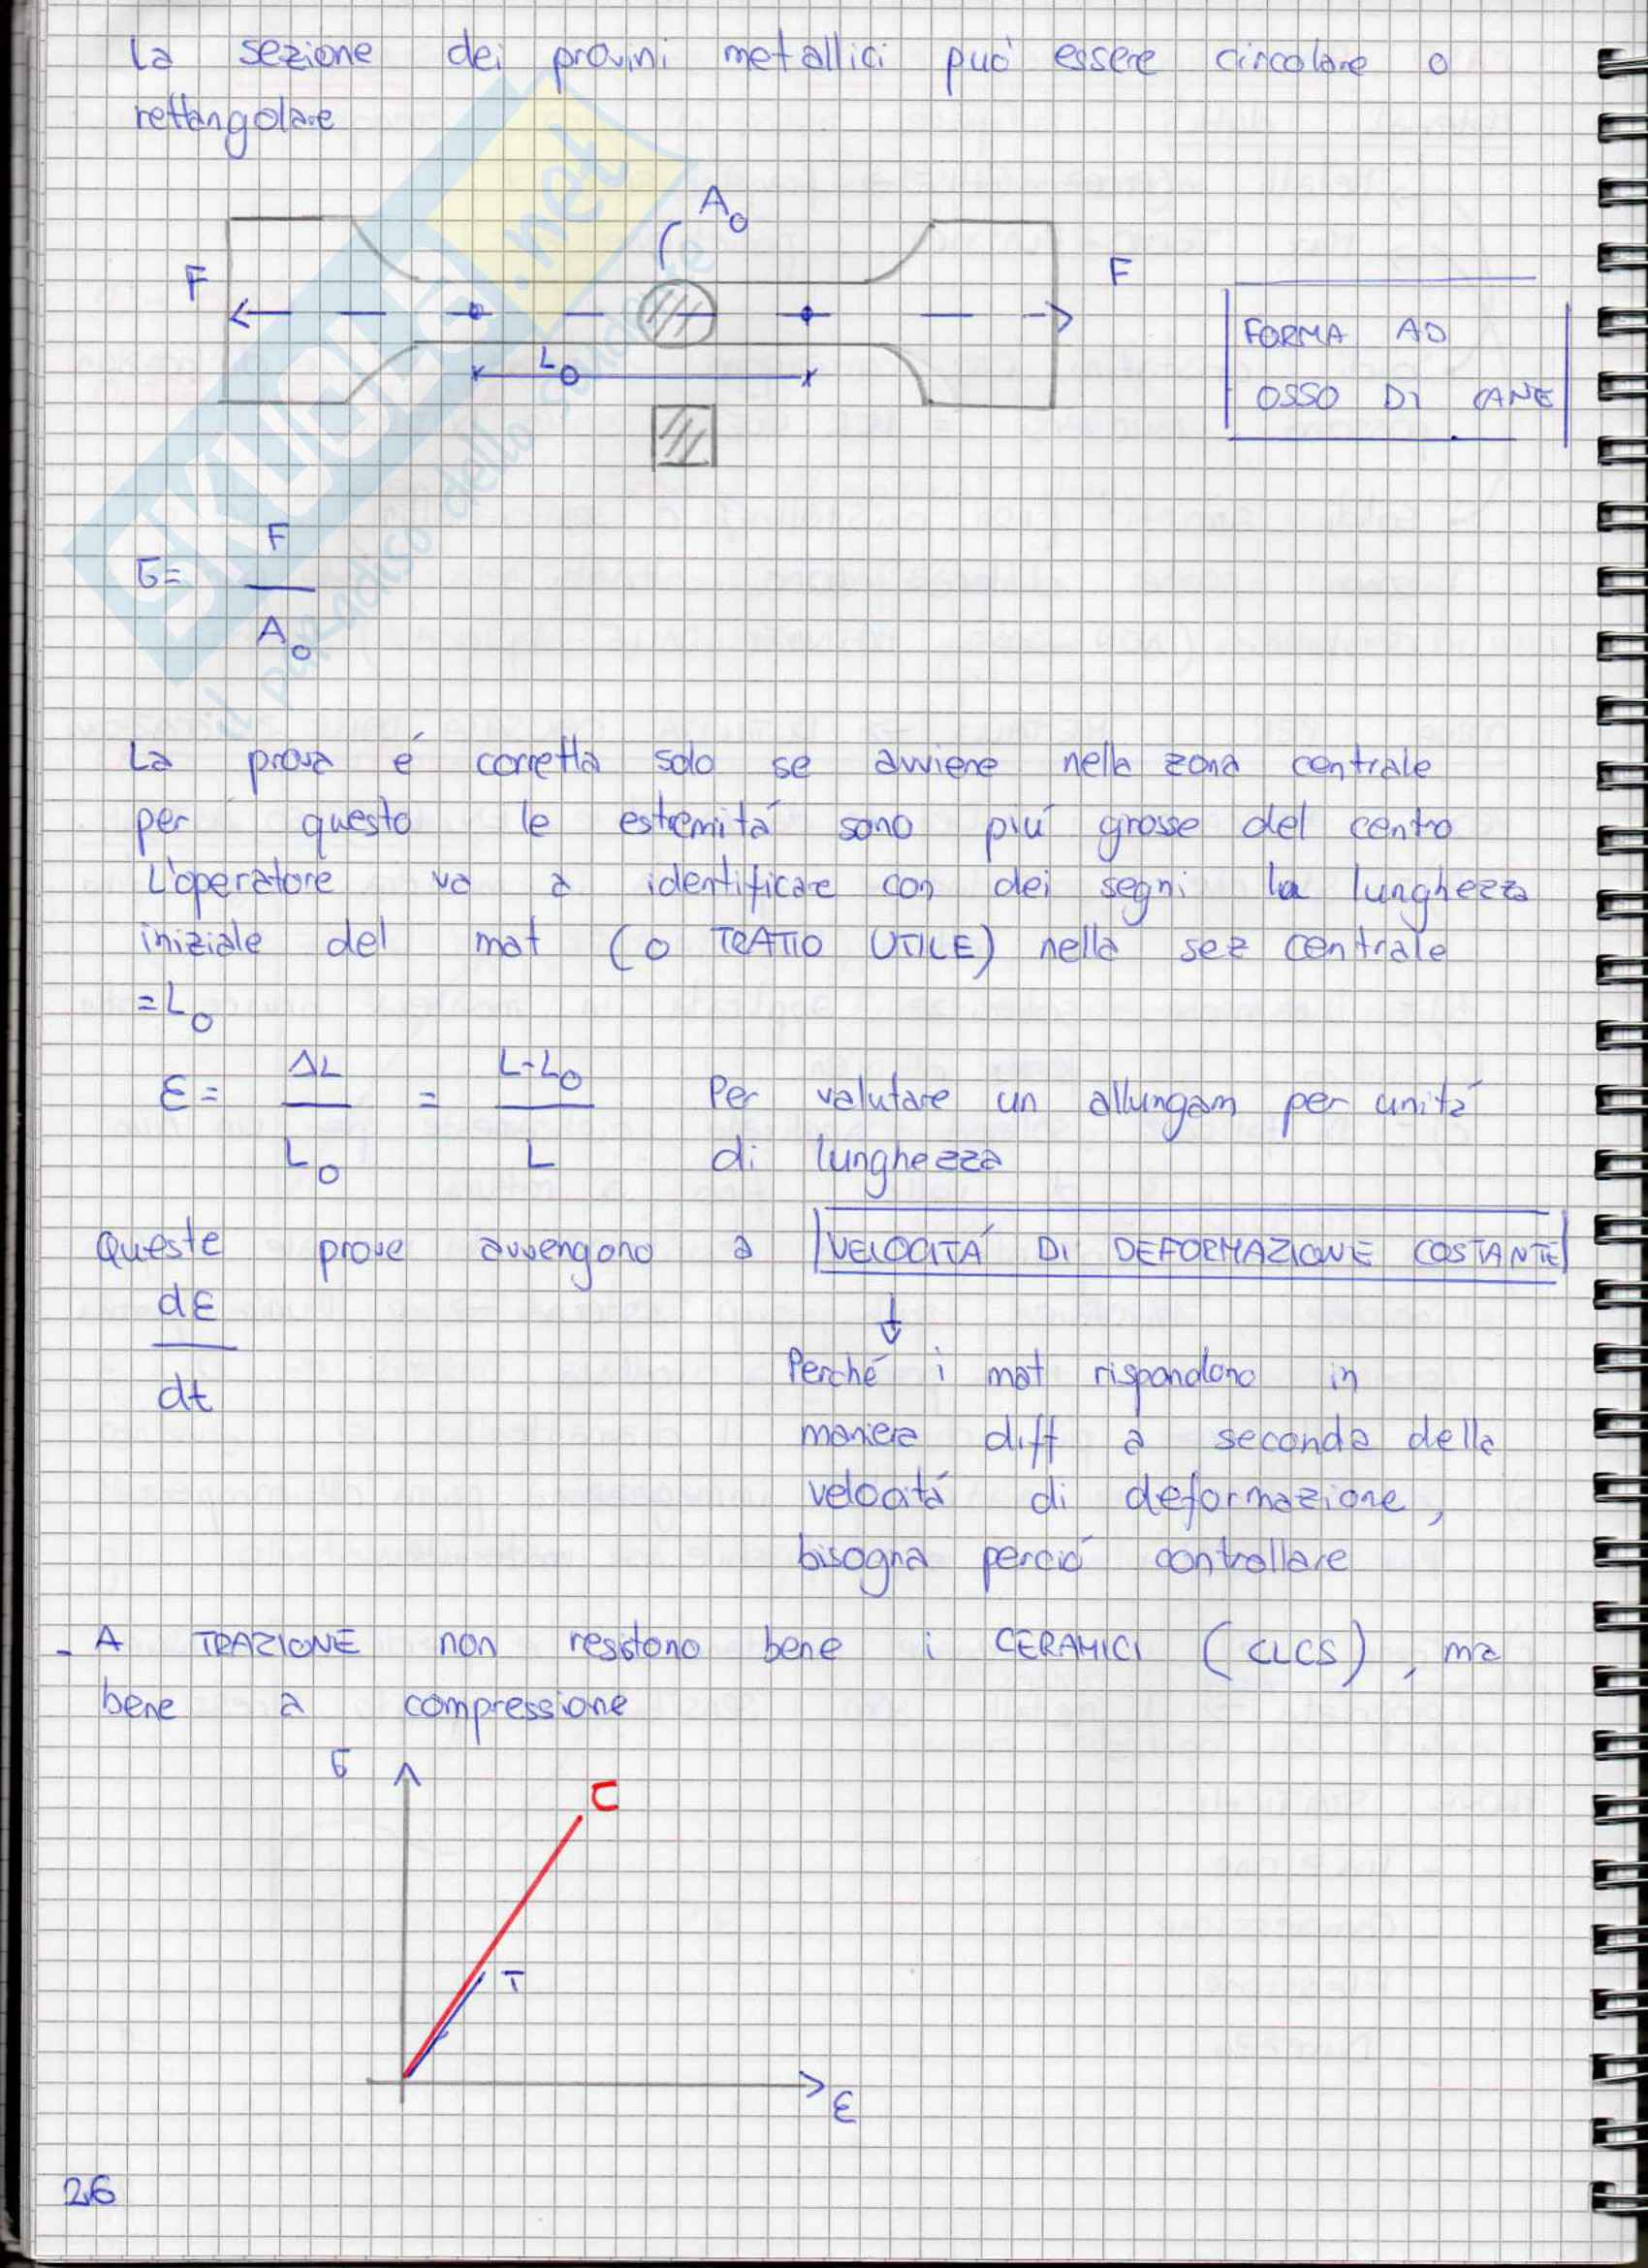 La sezione dei provini metallici può essere circolare o
rettangolare
A0
F F
L0
FORMA AD
OSSO DI CANE
SKUOLA.net
il paradiso dello studente
σ = F / A0
La prova é corretta solo se avviene nella zona centrale
per questo le estremitá sono piú grosse del centro
L'operatore va a identificare con dei segni la lunghezza
iniziale del mat (o TRATTO UTILE) nella sez centrale
= L0
ε = ΔL / L0 = L-L0 / L Per valutare un allungam per unitá
di lunghezza
Queste prove avvengono a VELOCITÁ DI DEFORMAZIONE COSTANTE
dε / dt
↓
Perché i mat rispondono in
maniera diff a seconda della
velocitá di deformazione,
bisogna perció controllare
- A TRAZIONE non resistono bene i CERAMICI (CLCS), ma
bene a compressione
σ
C
T
ε
26